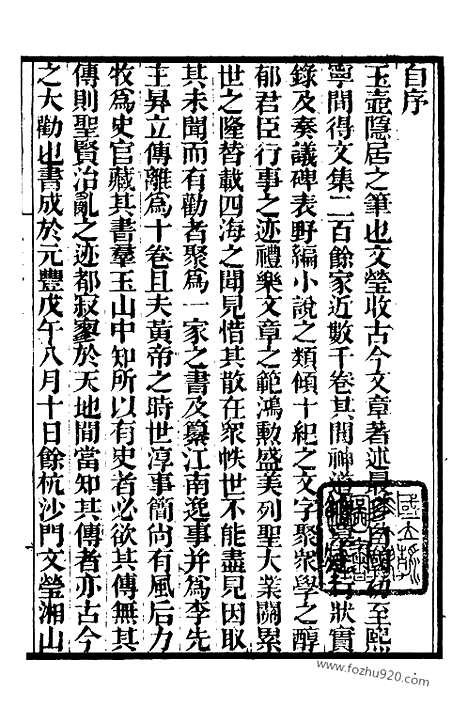 自序
玉壺隱居之筆也文瑩收古今文章著述最多自國初至熙
寧間得文集二百餘家近數千卷其間神道墓誌行狀實
錄及奏議碑表野編小說之類傾十紀之文字聚衆學之醇
郁君臣行事之迹禮樂文章之範鴻勳盛美列聖大業關累
世之隆替載四海之聞見惜其散在衆帙世不能盡見因取
其未聞而有勸者聚爲一家之書及纂江南逸事并爲李先
主昇立傳離爲十卷且夫黃帝之時世淳事簡尚有風后力
牧爲史官藏其書羣玉山中知所以有史者必欲其傳無其
傳則聖賢治亂之迹都寂寥於天地間當知其傳者亦古今
之大勸也書成於元豐戊午八月十日餘杭沙門文瑩湘山
www.fozhu920.com